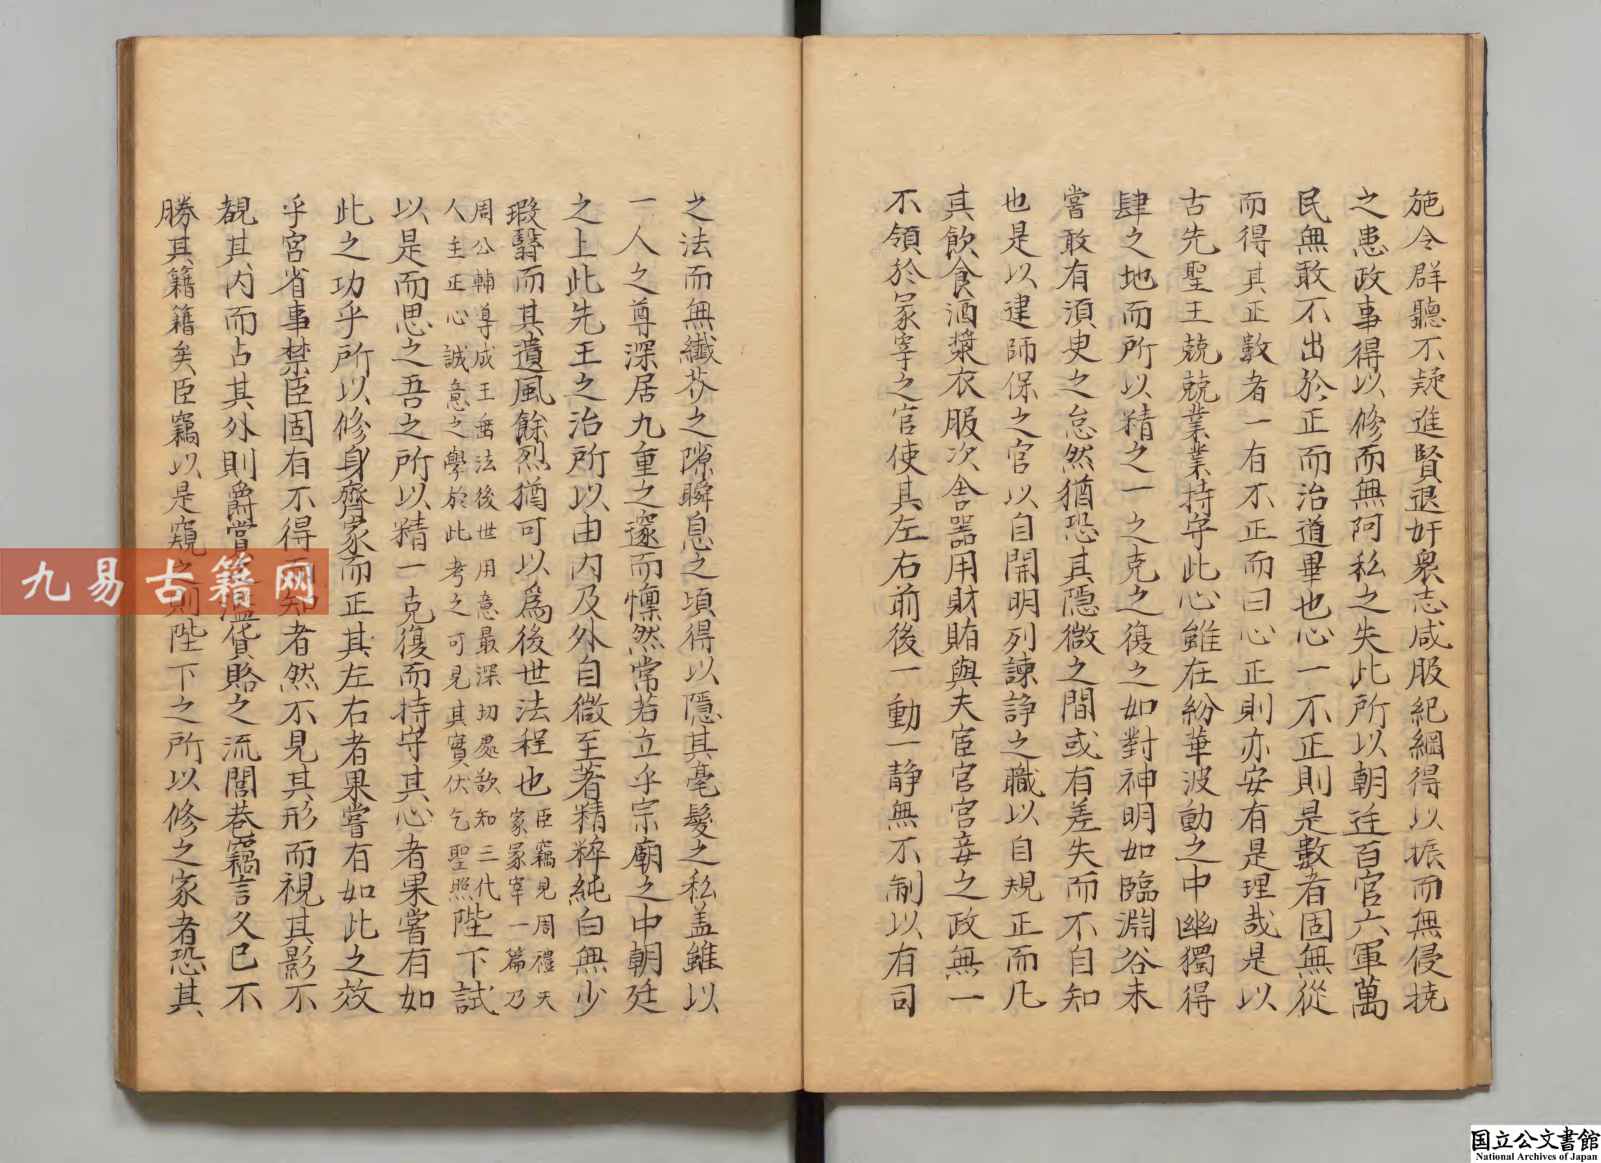 施令群聽不疑進賢退奸衆志咸服紀綱得以振而無侵撓
之患政事得以修而無阿私之失此所以朝廷百官六軍萬
民無敢不出於正而治道畢也心一不正則是數者固無從
而得其正數者一有不正而曰心正則亦安有是理哉是以
古先聖王兢兢業業持守此心雖在紛華波動之中幽獨得
肆之地而所以精之一之克之復之如對神明如臨淵谷未
嘗敢有須臾之怠然猶恐其隱微之間或有差失而不自知
也是以建師保之官以自開明列諫諍之職以自規正而凡
其飲食酒漿衣服次舍器用財賄與夫宦官宮妾之政無一
不領於冢宰之官使其左右前後一動一靜無不制以有司
之法而無纖芥之隙瞬息之頃得以隱其毫髮之私盖雖以
一人之尊深居九重之邃而懍然常若立乎宗廟之中朝廷
之上此先王之治所以由內及外自微至著精粹純白無少
瑕翳而其遺風餘烈猶可以為後世法程也臣竊見周禮天
家冢宰一篇乃
周公輔導成王垂法後世用意最深切處欲知三代
人主正心誠意之學於此考之可見其實伏乞聖照陛下試
以是而思之吾之所以精一克復而持守其心者果嘗有如
此之功乎所以修身齊家而正其左右者果嘗有如此之效
乎宮省事禁臣固有不得而知者然不見其形而視其影不
覩其內而占其外則爵賞之濫貨賂之流閭巷竊言久已不
勝其籍籍矣臣竊以是窺之則陛下之所以修之家者恐其
九易古籍网
国立公文書館
National Archives of Japan